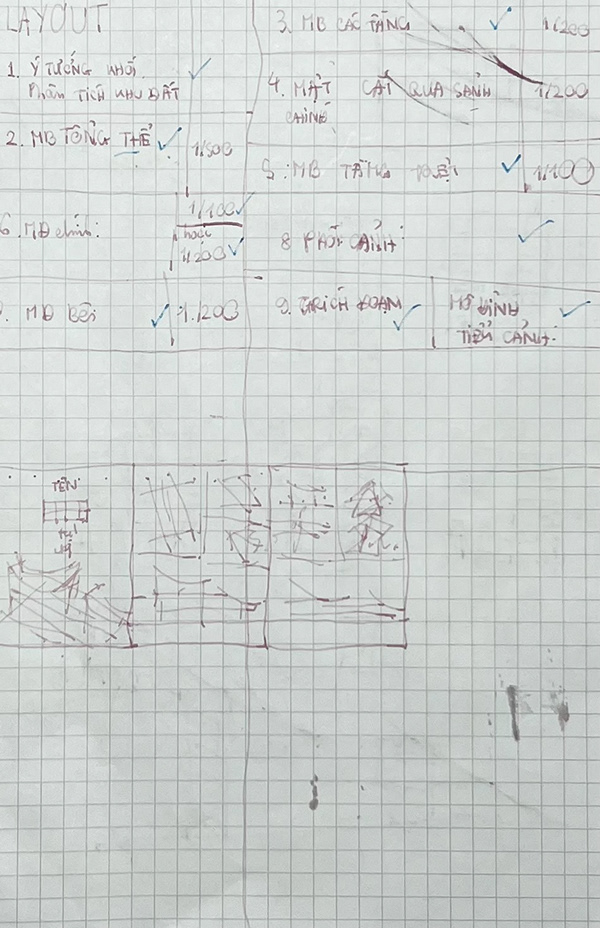 LAYOUT
1. Ý TƯỞNG KHỐI
Phân TÍCH KHU ĐẤT
2. MB TỔNG THỂ 1/500
3. MB CÁC TẦNG 1/200
4. MẶT CẮT QUA SẢNH 1/200
CHÍNH
5. MB TẦNG 1/100
6. MĐ chính: 1/100
hoặc
1/200
8 PHỐI CẢNH
MĐ Bên 1.1200
9. TRÍCH ĐOẠN
TIỂU CẢNH
TÊN